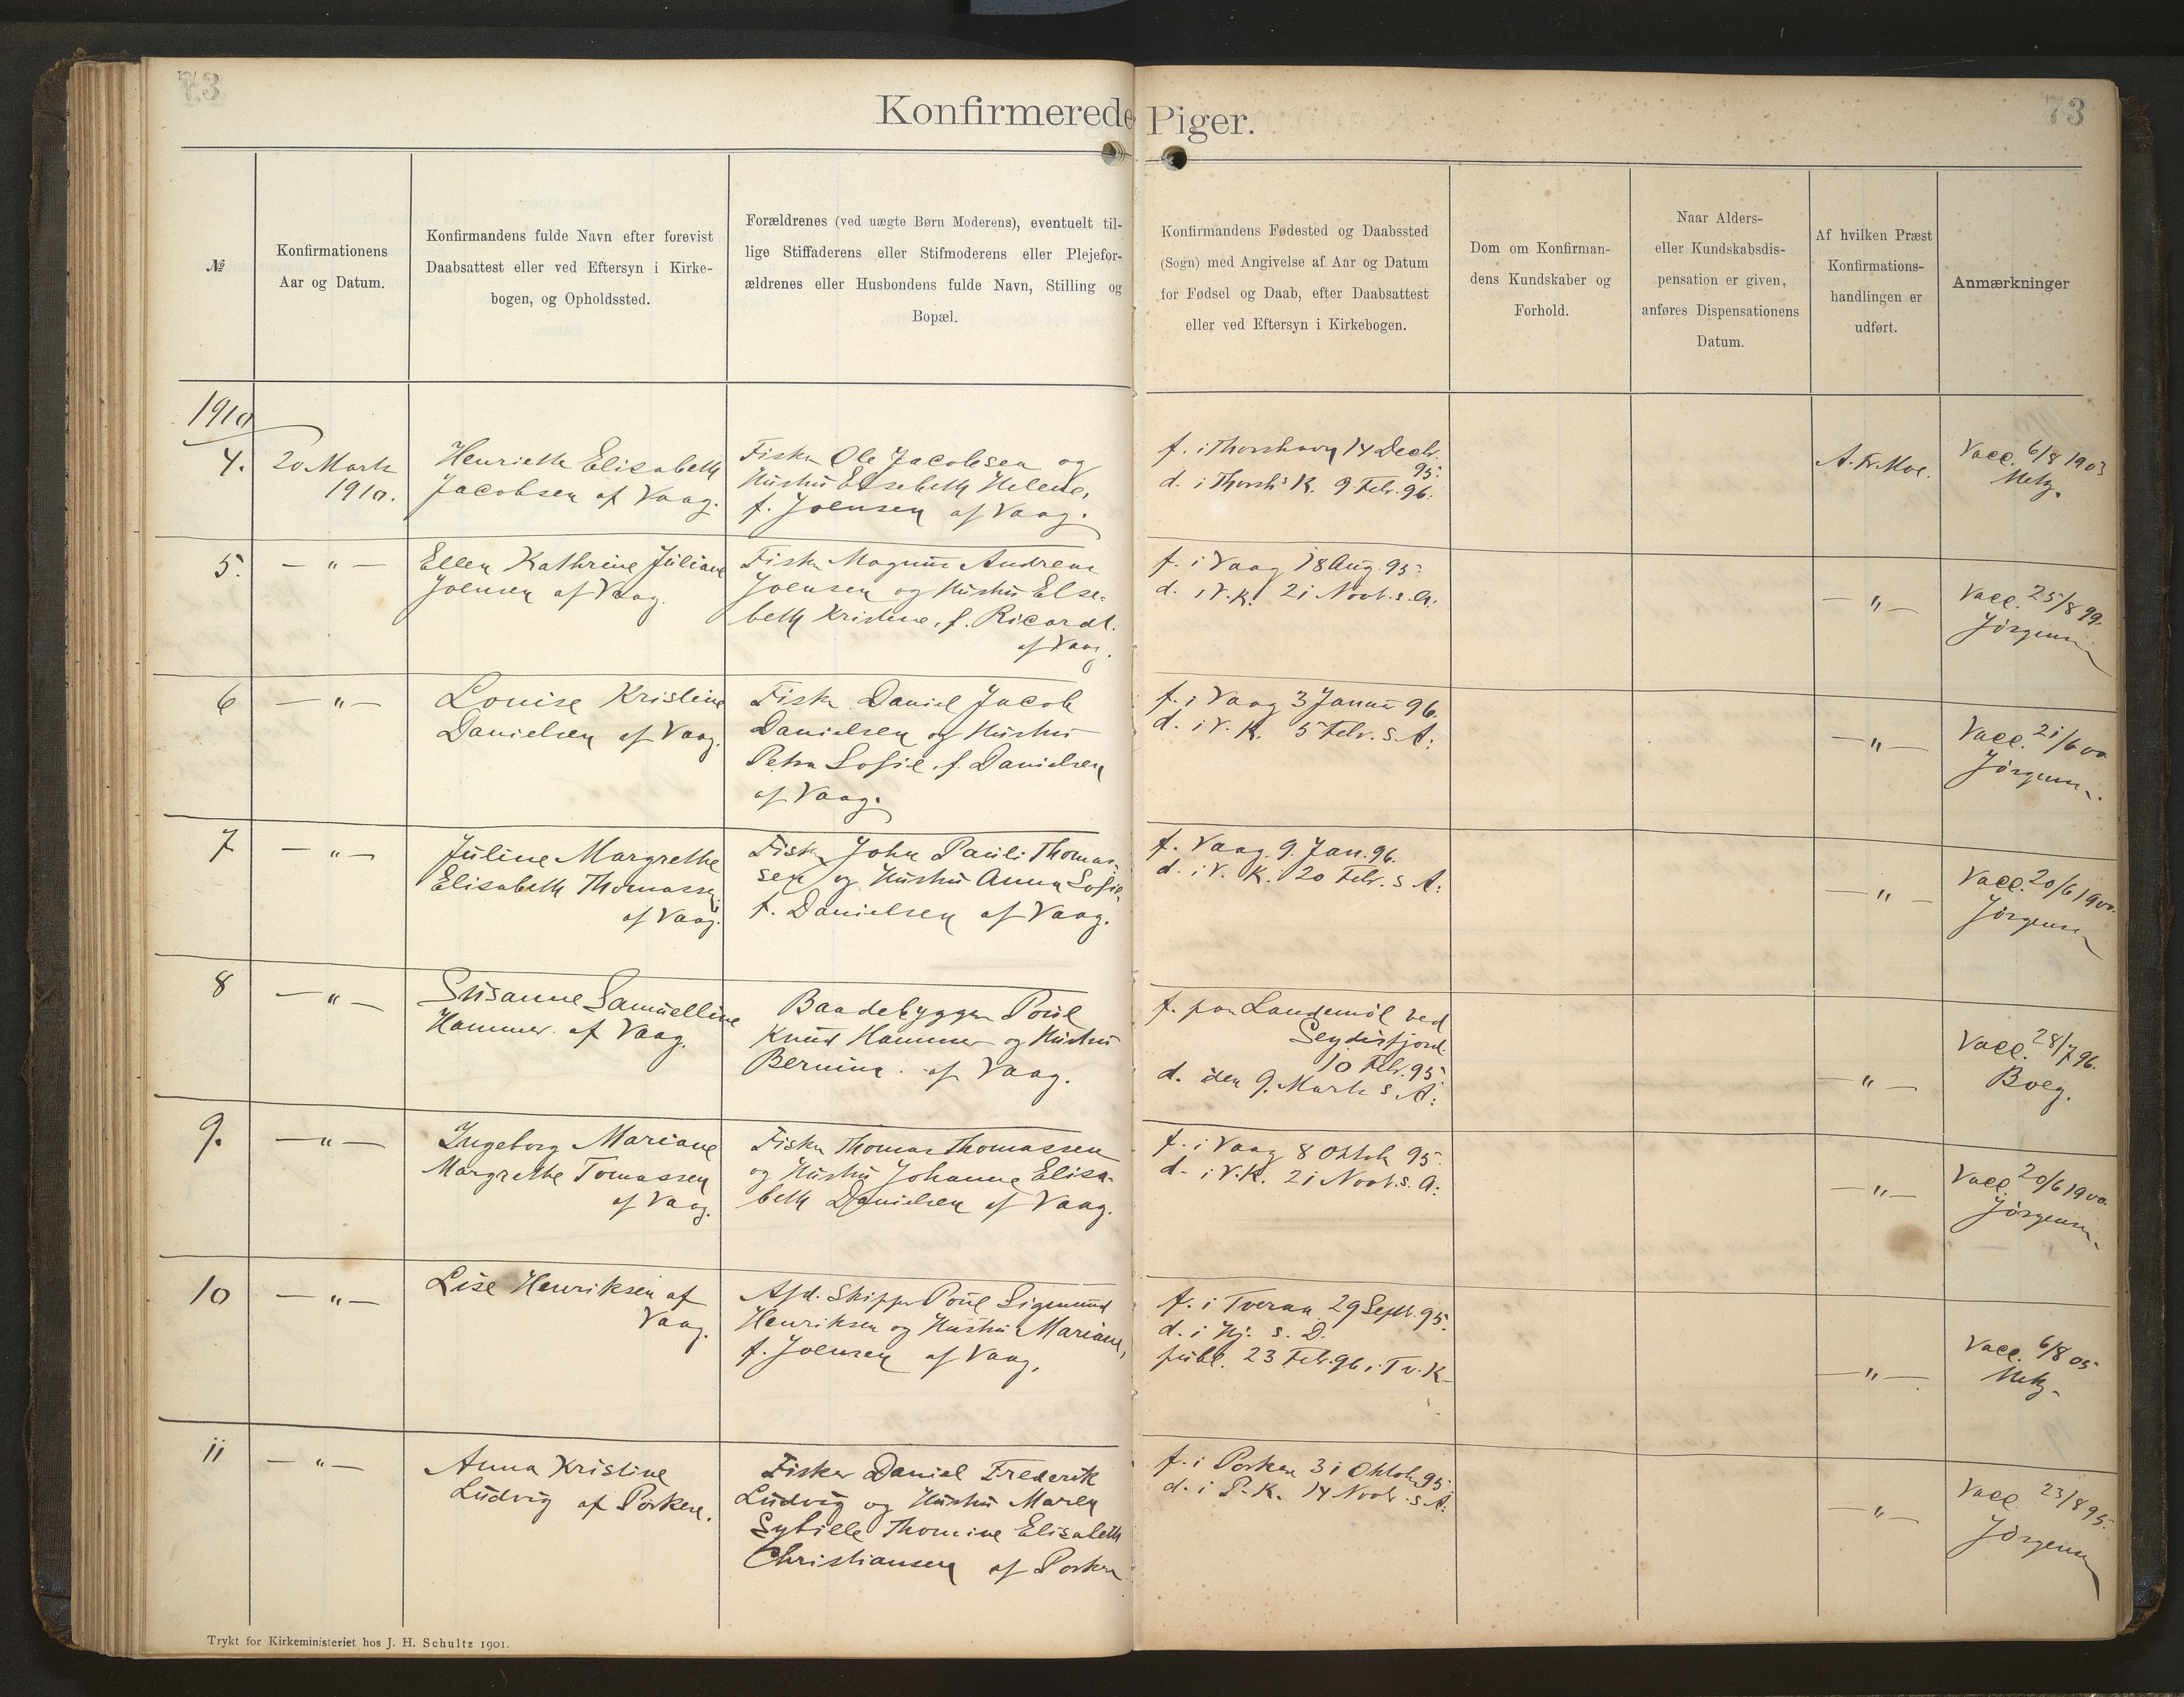 73
Konfirmerede Piger.
73
№
Konfirmationens
Aar og Datum.
Konfirmandens fulde Navn efter forevist
Daabsattest eller ved Eftersyn i Kirke-
bogen, og Opholdssted.
Forældrenes (ved uægte Børn Moderens), eventuelt til-
lige Stiffaderens eller Stifmoderens eller Plejefor-
ældrenes eller Husbondens fulde Navn, Stilling og
Bopæl.
Konfirmandens Fødested og Daabssted
(Sogn) med Angivelse af Aar og Datum
for Fødsel og Daab, efter Daabsattest
eller ved Eftersyn i Kirkebogen.
Dom om Konfirman-
dens Kundskaber og
Forhold.
Naar Alders-
eller Kundskabsdis-
pensation er given,
anføres Dispensationens
Datum.
Af hvilken Præst
Konfirmations-
handlingen er
udført.
Anmærkninger
1910
4.
20 Marts
1910.
Henriette Elisabeth
Jacobsen af Vaag.
Fisker Ole Jacobsen og
Hustru Elsebeth Helene,
f. Joensen af Vaag.
f. i Thorshavn 14 Decbr.
95.
d. i Thorsh's K. 9 Febr. 96.
A. Fr. Moe.
Vacc. 6/8 1903
Metz.
5.
— " —
Ellen Kathrine Juliane
Joensen af Vaag.
Fisker Magnus Andreas
Joensen og Hustru Else-
beth Kristine, f. Ricardt.
af Vaag.
f. i Vaag 18 Aug. 95.
d. i V. K. 21 Novb. s. A.
— " —
Vacc. 25/8 99.
Jörgensen
6
— " —
Louise Kristine
Danielsen af Vaag.
Fisker Daniel Jacob
Danielsen og Hustru
Petra Sofie, f. Danielsen
af Vaag.
f. i Vaag 3 Januar 96.
d. i V. K. 5 Febr. s. A.
— " —
Vacc. 21/6 00.
Jörgensen.
7
— " —
Juline Margrethe
Elisabeth Thomassen
af Vaag.
Fisker John Pauli Thomas-
sen og Hustru Anna Sofie,
f. Danielsen af Vaag.
f. Vaag 9. Jan. 96.
d. i V. K. 20 Febr. s A.
— " —
Vacc. 20/6 1900.
Jörgensen
8
— " —
Susanne Samuelline
Hammer af Vaag.
Baadebygger Poul
Knud Hammer og Hustru
Bernina af Vaag.
f. paa Landemöl ved
Seydisfjord.
10 Febr. 95.
d. den 9. Marts s A.
— " —
Vacc. 28/7 96.
Boeg.
9.
— " —
Ingeborg Mariane
Margrethe Tomassen
af Vaag.
Fisker Thomas Thomassen
og Hustru Johanne Elisa-
beth Danielsen af Vaag.
f. i Vaag 8 Oktob 95.
d. i V. K. 21 Novb. s. A.
— " —
Vacc. 20/6 1900.
Jörgensen.
10
— " —
Lise Henriksen af
Vaag.
Afd. Skipper Poul Sigmund
Henriksen og Hustru Mariane,
f. Joensen af Vaag.
f. i Tveraa 29 Septb. 95.
d. i Hj. s. D.
publ. 23 Febr. 96 i Tv. K.
— " —
Vacc. 6/8 05
Metz.
11
— " —
Anna Kristine
Ludvig af Porkere.
Fisker Daniel Frederik
Ludvig og Hustru Maren
Sybille Thomine Elisabeth
Christiansen af Porkere
f. i Porkere 31 Oktob 95.
d. i P. K. 14 Novb. s A.
— " —
Vacc. 23/8 95.
Jörgensen
Trykt for Kirkeministeriet hos J. H. Schultz 1901.